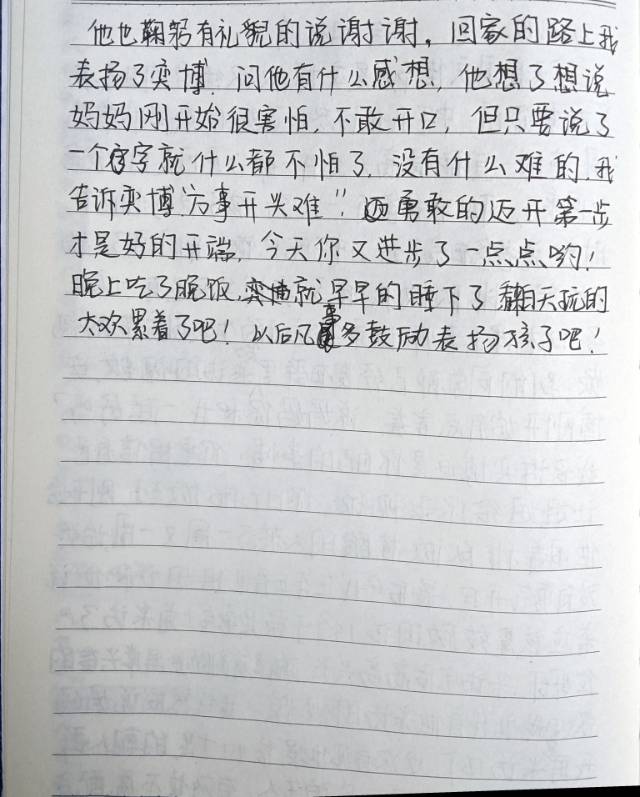 他也鞠躬有礼貌的说谢谢。回家的路上我
表扬了奕博。问他有什么感想，他想了想说
妈妈刚开始很害怕，不敢开口，但只要说了
一个字就什么都不怕了，没有什么难的，我
告诉奕博“万事开头难”。迈勇敢的迈开第一步
才是好的开端，今天你又进步了一点点哟！
晚上吃了晚饭，奕博就早早的睡下了 翻天玩的
太欢累着了吧！以后凡事多鼓励表扬孩子吧！